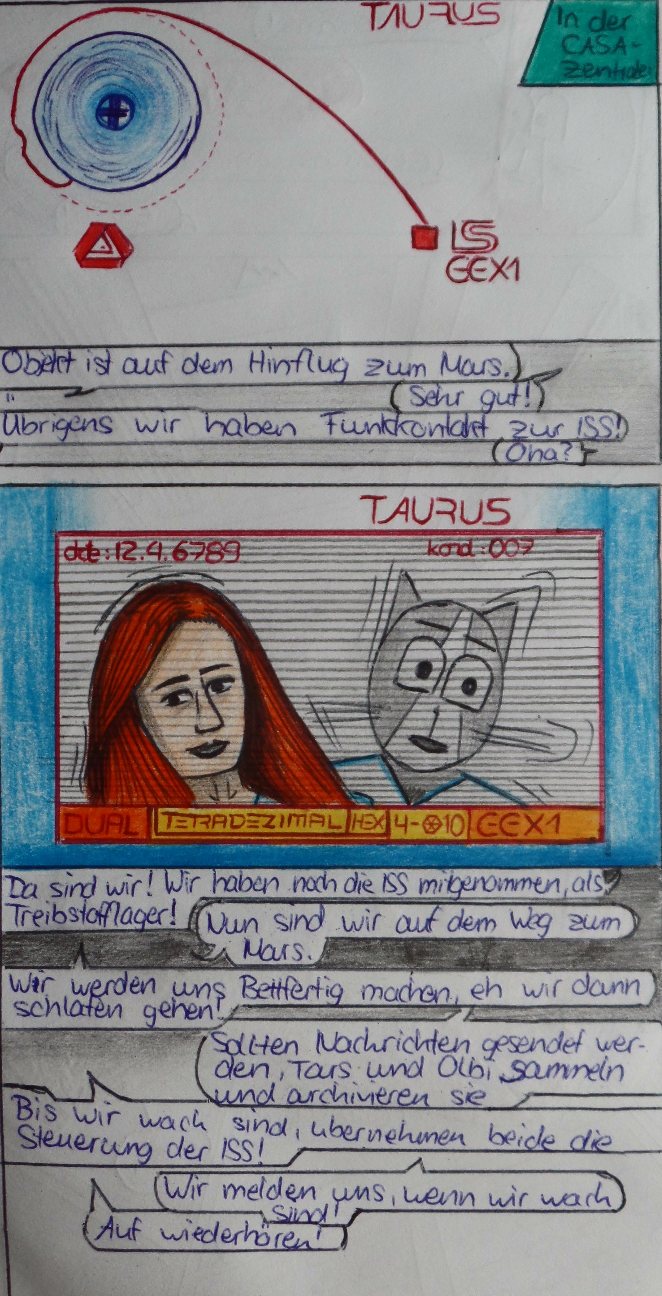 TAURUS
In der
CASA-
Zentrale
ISS
EEX1
Objekt ist auf dem Hinflug zum Mars.
Sehr gut!
Übrigens wir haben Funkkontakt zur ISS!
Oha?
TAURUS
date: 12.4.6789
kond: 007
DUAL TETRADEZIMAL HEX 4-⊛10 EEX1
Da sind wir! Wir haben noch die ISS mitgenommen, als
Treibstofflager!
Nun sind wir auf dem Weg zum
Mars.
Wir werden uns Bettfertig machen, eh wir dann
schlafen gehen!
Sollten Nachrichten gesendet wer-
den, Tars und Olbi sammeln
und archivieren sie
Bis wir wach sind, übernehmen beide die
Steuerung der ISS!
Wir melden uns, wenn wir wach
sind!
Auf wiederhören!